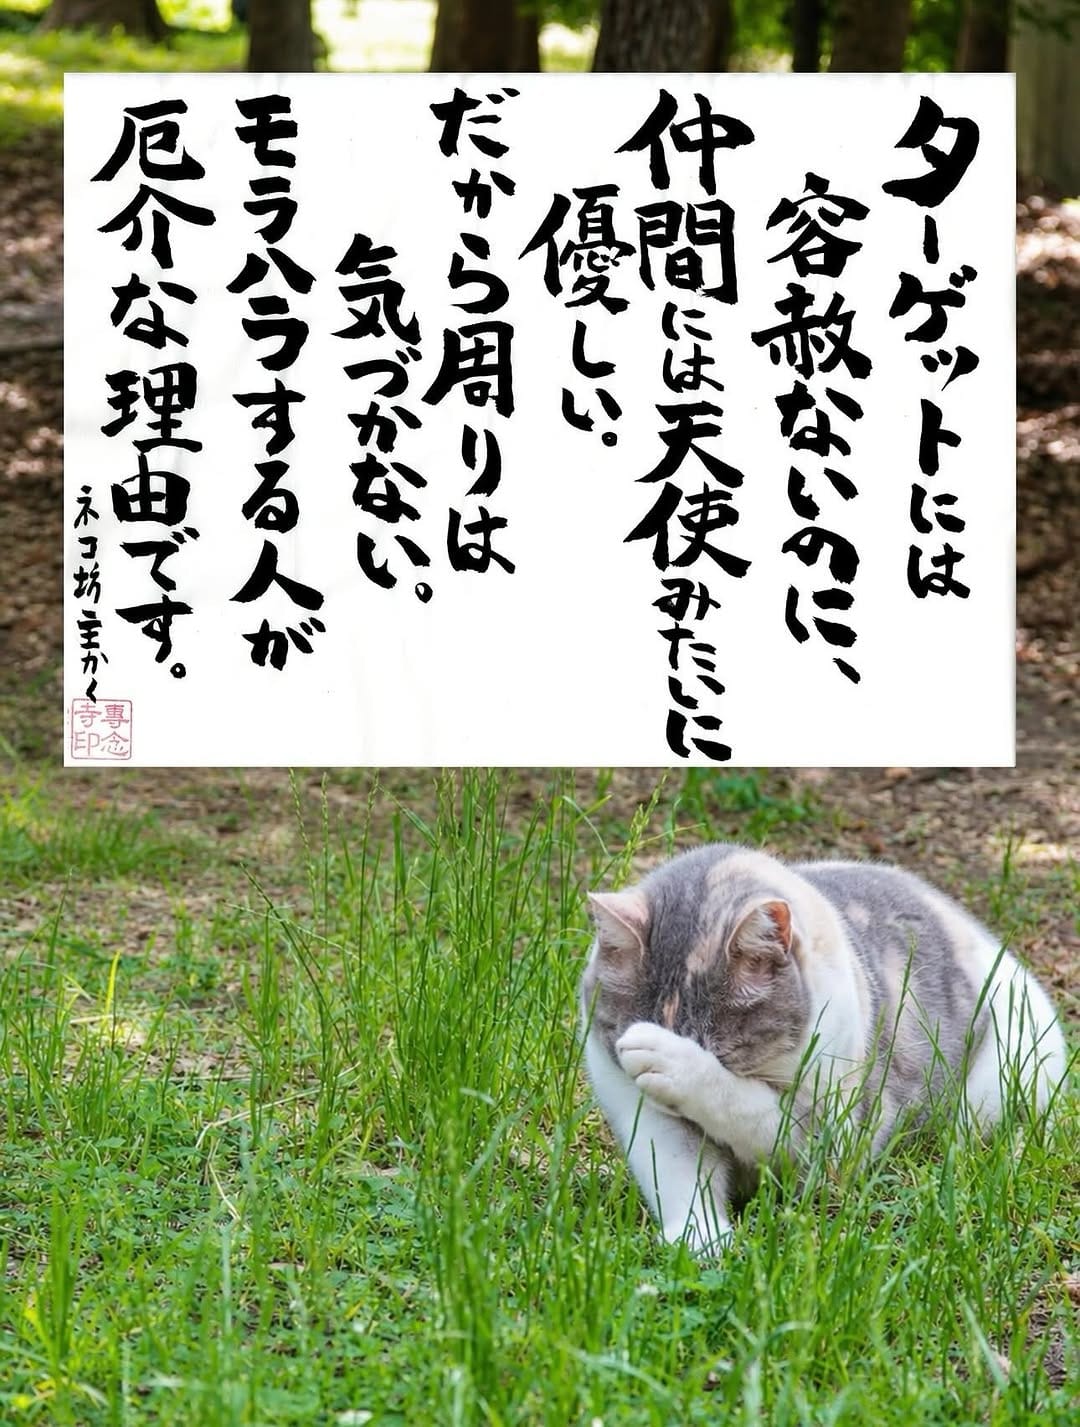 ターゲットには
容赦ないのに、
仲間には天使みたいに
優しい。
だから周りは
気づかない。
モラハラする人が
厄介な理由です。
ネコ坊主かく
專念
寺印